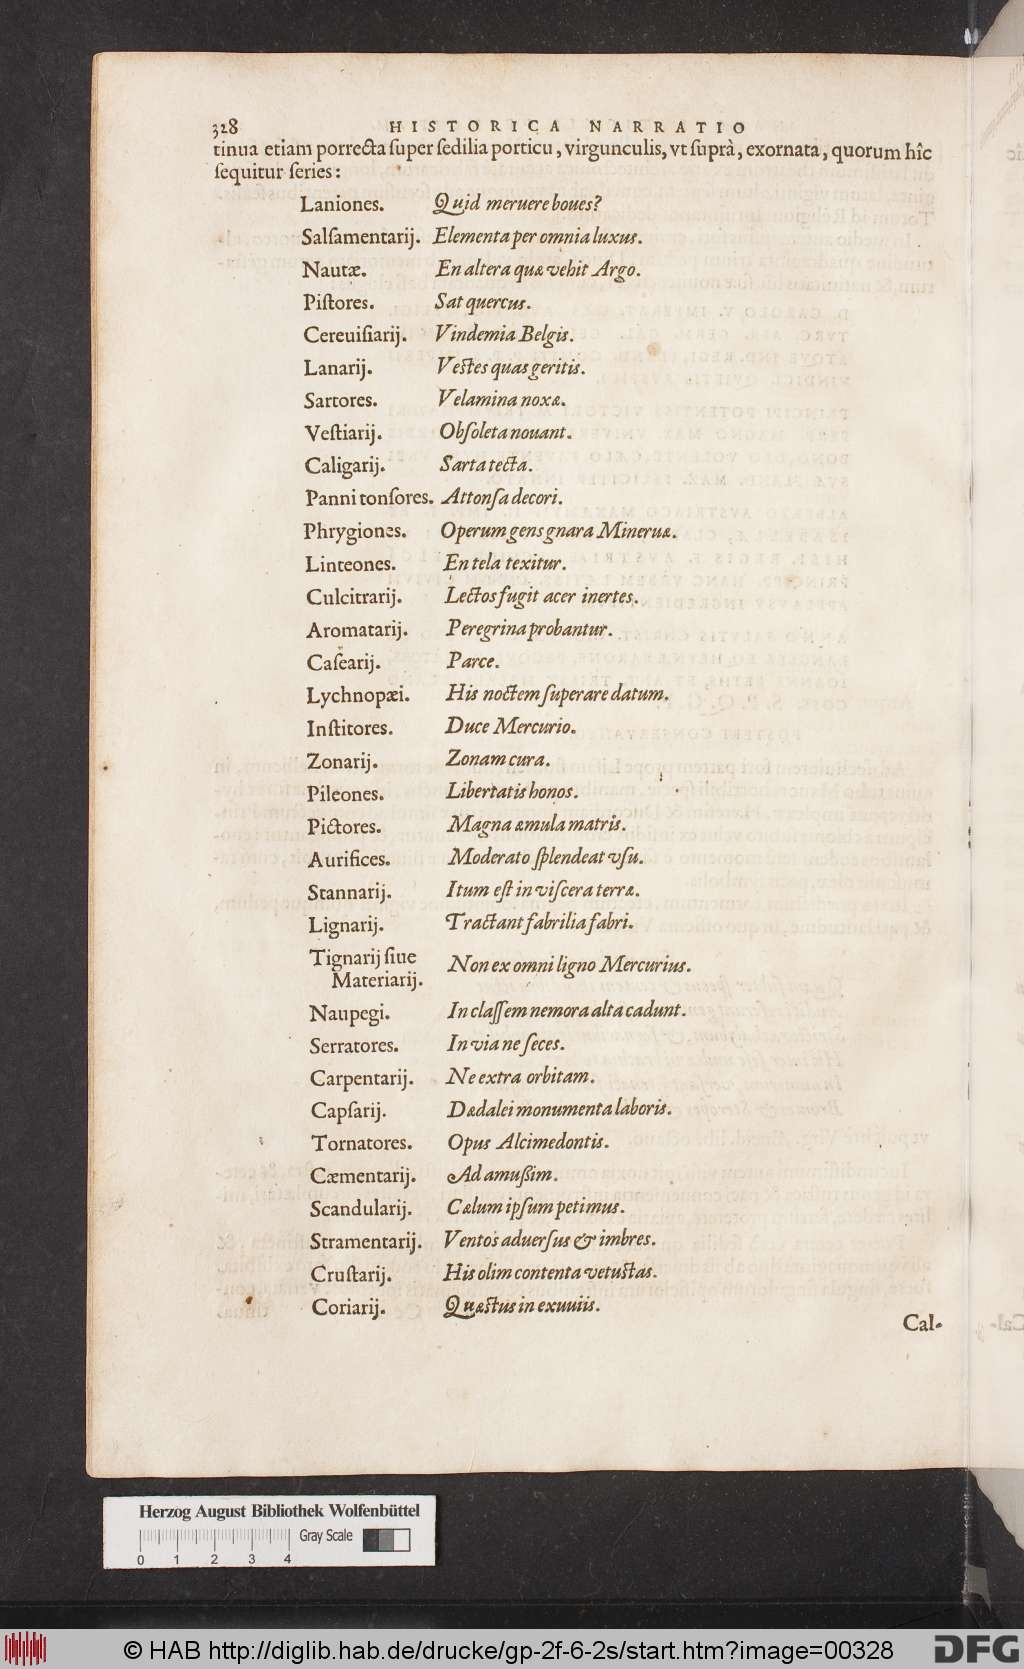 328 HISTORICA NARRATIO
tinua etiam porrecta ſuper ſedilia porticu, virgunculis, vt ſuprà, exornata, quorum hîc
ſequitur ſeries:
Laniones. Quid meruere boues?
Salſamentarij. Elementa per omnia luxus.
Nautæ. En altera quæ vehit Argo.
Piſtores. Sat quercus.
Cereuiſiarij. Vindemia Belgis.
Lanarij. Veſtes quas geritis.
Sartores. Velamina noxæ.
Veſtiarij. Obſoleta nouant.
Caligarij. Sarta tecta.
Panni tonſores. Attonſa decori.
Phrygiones. Operum gens gnara Mineruæ.
Linteones. En tela texitur.
Culcitrarij. Lectos fugit acer inertes.
Aromatarij. Peregrina probantur.
Caſearij. Parce.
Lychnopæi. His noctem ſuperare datum.
Inſtitores. Duce Mercurio.
Zonarij. Zonam cura.
Pileones. Libertatis honos.
Pictores. Magna æmula matris.
Aurifices. Moderato ſplendeat vſu.
Stannarij. Itum eſt in viſcera terræ.
Lignarij. Tractant fabrilia fabri.
Tignarij ſiue
Materiarij. Non ex omni ligno Mercurius.
Naupegi. In claſſem nemora alta cadunt.
Serratores. In via ne ſeces.
Carpentarij. Ne extra orbitam.
Capſarij. Dædalei monumenta laboris.
Tornatores. Opus Alcimedontis.
Cæmentarij. Ad amußim.
Scandularij. Cælum ipſum petimus.
Stramentarij. Ventos aduerſus & imbres.
Cruſtarij. His olim contenta vetuſtas.
Coriarij. Quæſtus in exuuiis.
Cal-
Herzog August Bibliothek Wolfenbüttel
Gray Scale
0 1 2 3 4
© HAB http://diglib.hab.de/drucke/gp-2f-6-2s/start.htm?image=00328
DFG